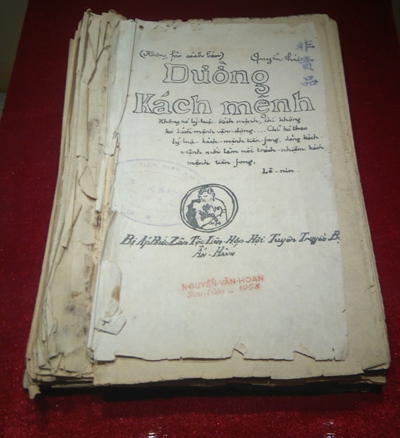 非賣品
Đường
Kách mệnh
Không có lý luận kách mệnh, thì không
có kách mệnh vận-động.... Chỉ có theo
lý luận kách mệnh tiền fong, đảng kách
mệnh mới làm nổi trách-nhiệm kách
mệnh tiền fong.
Lê-nin.
Bị Áp Bức Zân Tộc Liên Hợp Hội Tuyên Truyền B.
Ấn-Hành
NGUYỄN-VĂN-HOAN
1958